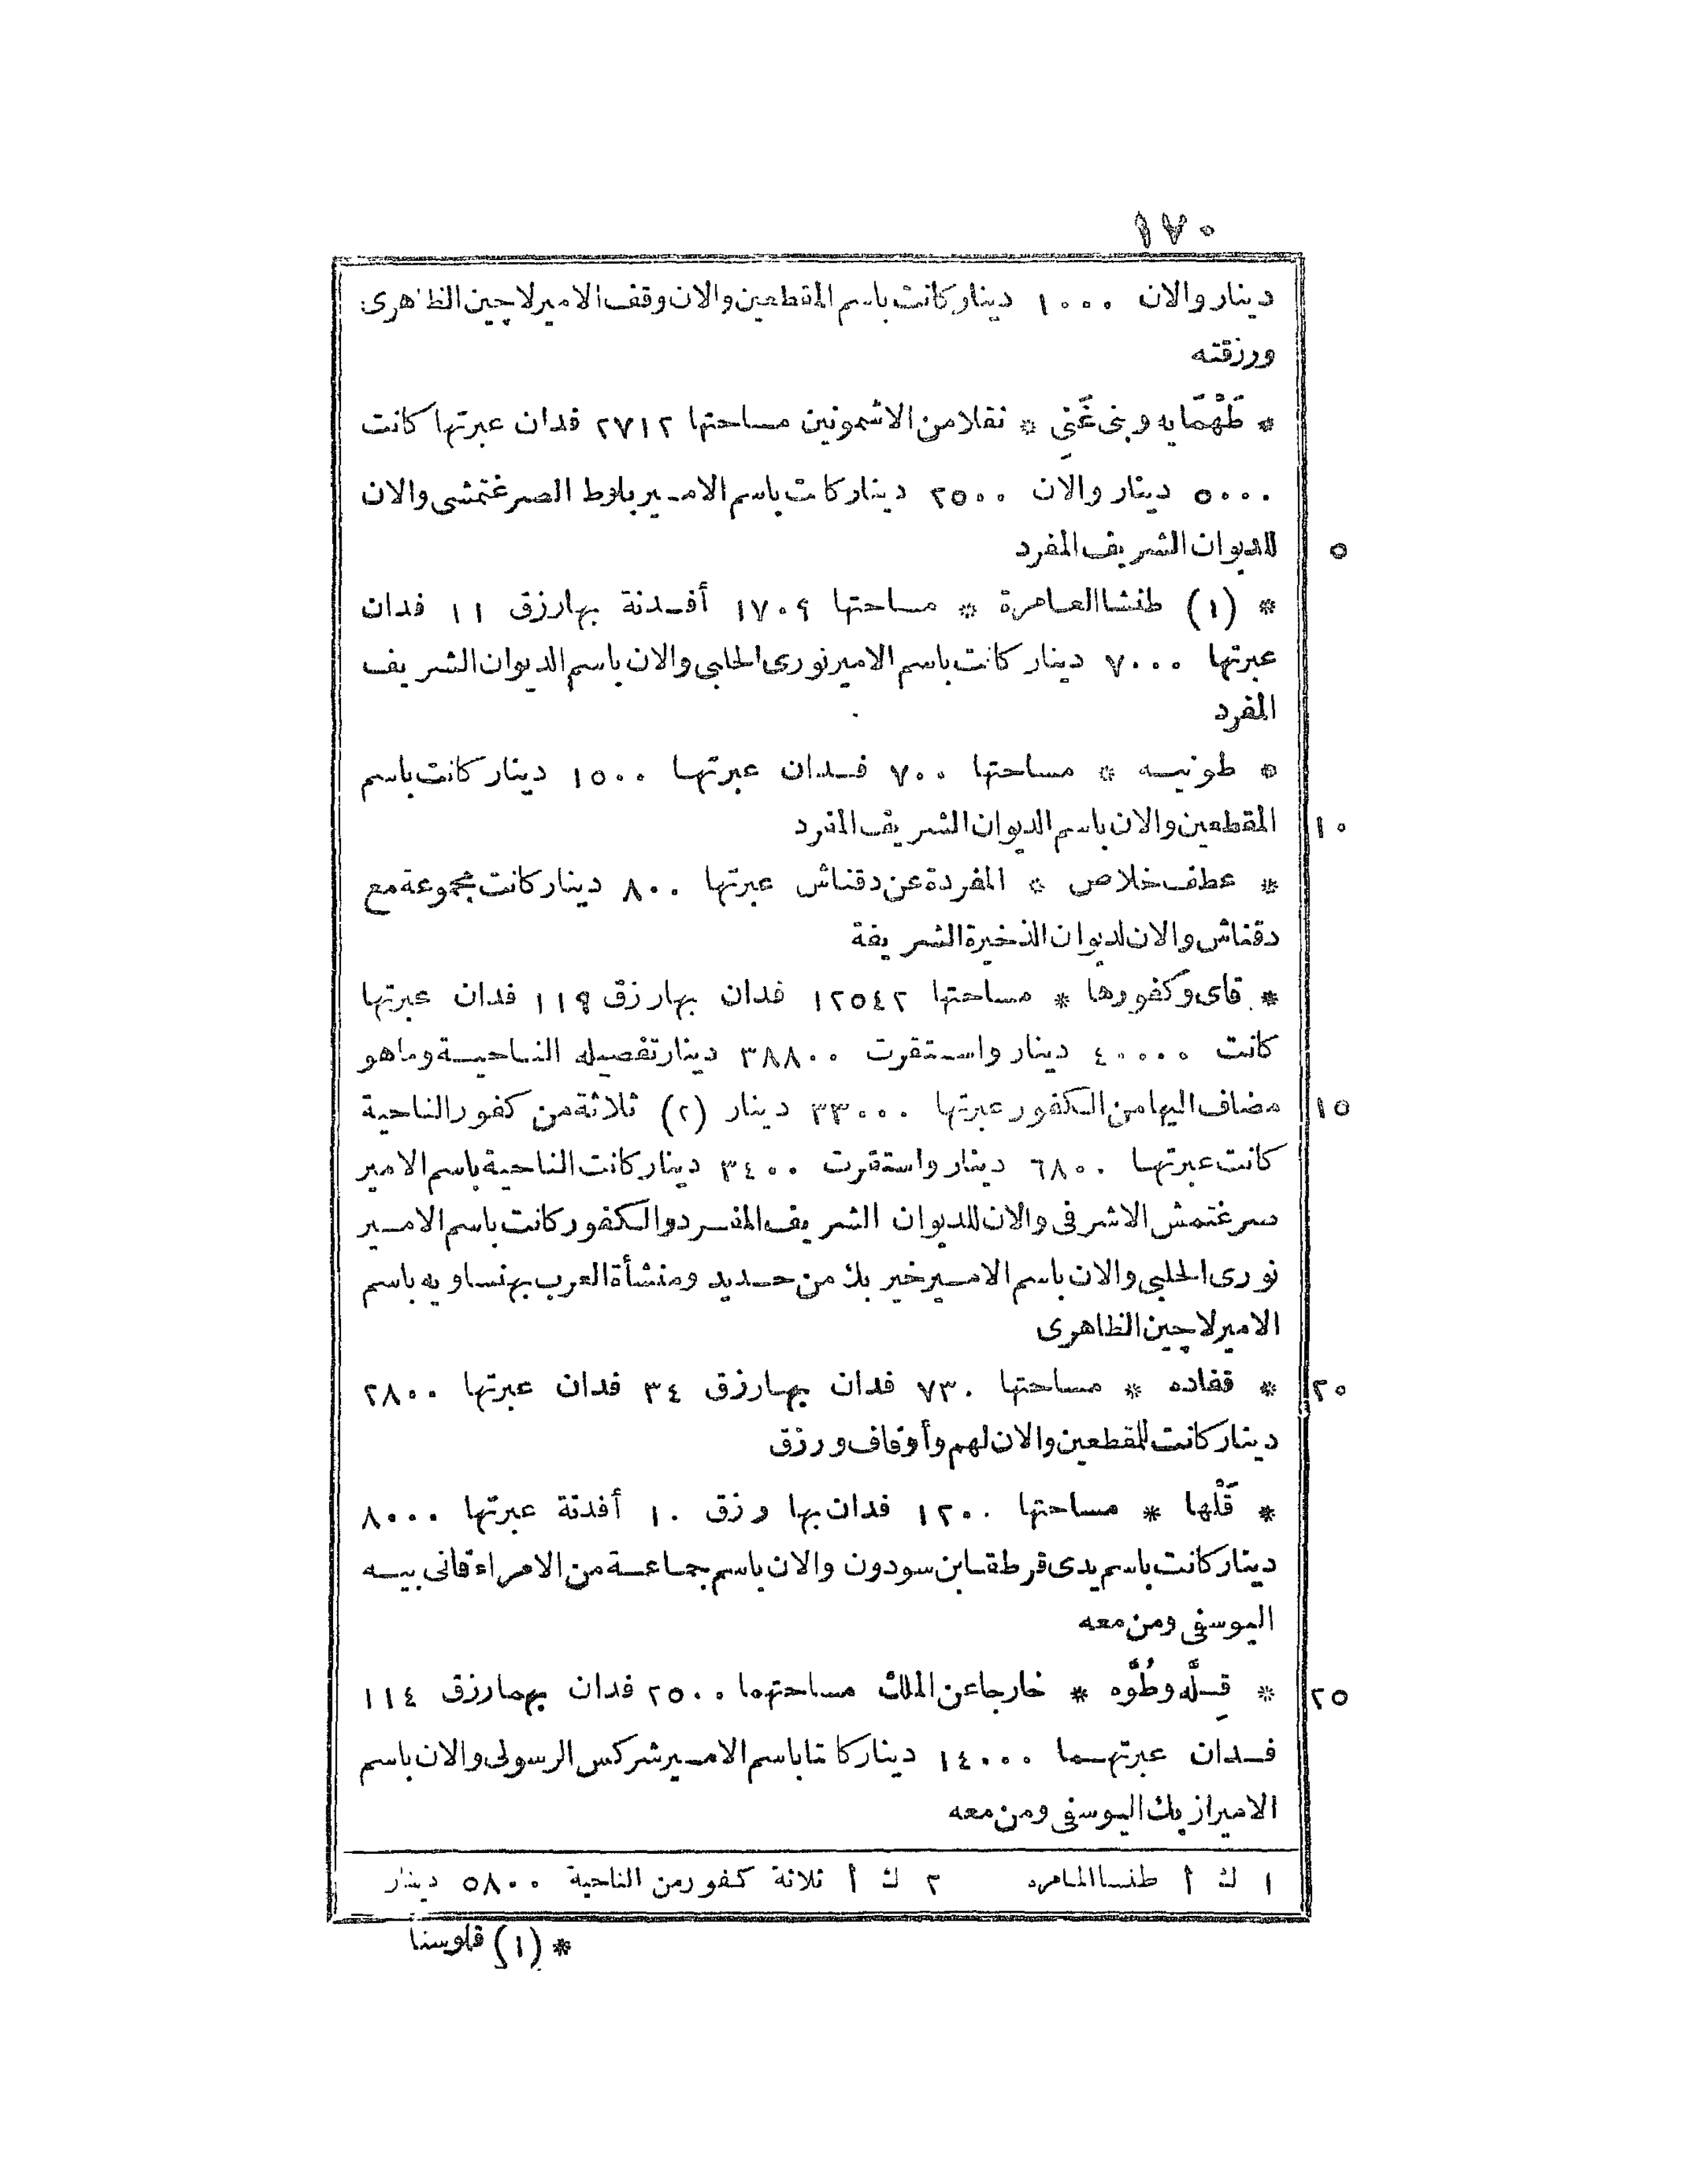 ١٧٠
دينار والان ١٠٠٠ دينار كانت باسم المقطعين والان وقف الامير لاچين الظاهرى
ورزقته
* طَهْمَايه وبنى غَنِي * نقلا من الاشمونين مساحتها ٢٧١٢ فدان عبرتها كانت
٥٠٠٠ دينار والان ٢٥٠٠ دينار كانت باسم الامير بلاط الصرغتمشى والان
للديوان الشريف المفرد
٥
* (١) طنشا العامرة * مساحتها ١٧٠٩ أفدنة بها رزق ١١ فدان
عبرتها ٧٠٠٠ دينار كانت باسم الامير نورى الحلبى والان باسم الديوان الشريف
المفرد
* طونيه * مساحتها ٧٠٠ فدان عبرتها ١٥٠٠ دينار كانت باسم
المقطعين والان باسم الديوان الشريف المفرد
١٠
* عطف خلاص * المفردة عن دقناش عبرتها ٨٠٠ دينار كانت مجموعة مع
دقناش والان لديوان الذخيرة الشريفة
* قاى وكفورها * مساحتها ١٢٥٤٢ فدان بها رزق ١١٩ فدان عبرتها
كانت ٤٠٠٠٠ دينار واستقرت ٣٨٨٠٠ دينار تفصيله الناحية وما هو
مضاف اليها من الكفور عبرتها ٣٣٠٠٠ دينار (٢) ثلاثة من كفور الناحية
١٥
كانت عبرتها ٦٨٠٠ دينار واستقرت ٣٤٠٠ دينار كانت الناحية باسم الامير
صرغتمش الاشرفى والان للديوان الشريف المفرد والكفور كانت باسم الامير
نورى الحلبى والان باسم الامير خير بك من حديد ومنشأة العرب بهنساويه باسم
الامير لاچين الظاهرى
* قفاده * مساحتها ٧٣٠ فدان بها رزق ٣٤ فدان عبرتها ٢٨٠٠
٢٠
دينار كانت للمقطعين والان لهم وأوقاف ورزق
* قَلْها * مساحتها ١٢٠٠ فدان بها رزق ١٠ أفدنة عبرتها ٨٠٠٠
دينار كانت باسم يدى قرطقا بن سودون والان باسم جماعة من الامراء قانى بيه
اليوسفى ومن معه
* قِسلَّه وطُوَّه * خارجا عن الملك مساحتهما ٢٥٠٠ فدان بهما رزق ١١٤
٢٥
فدان عبرتهما ١٤٠٠٠ دينار كانتا باسم الامير شركس الرسولى والان باسم
الامير ازبك اليوسفى ومن معه
١ ك أ طنسا المامره ٢ ك أ ثلاثة كفور من الناحية ٥٨٠٠ دينار
* (١) قلوسنا